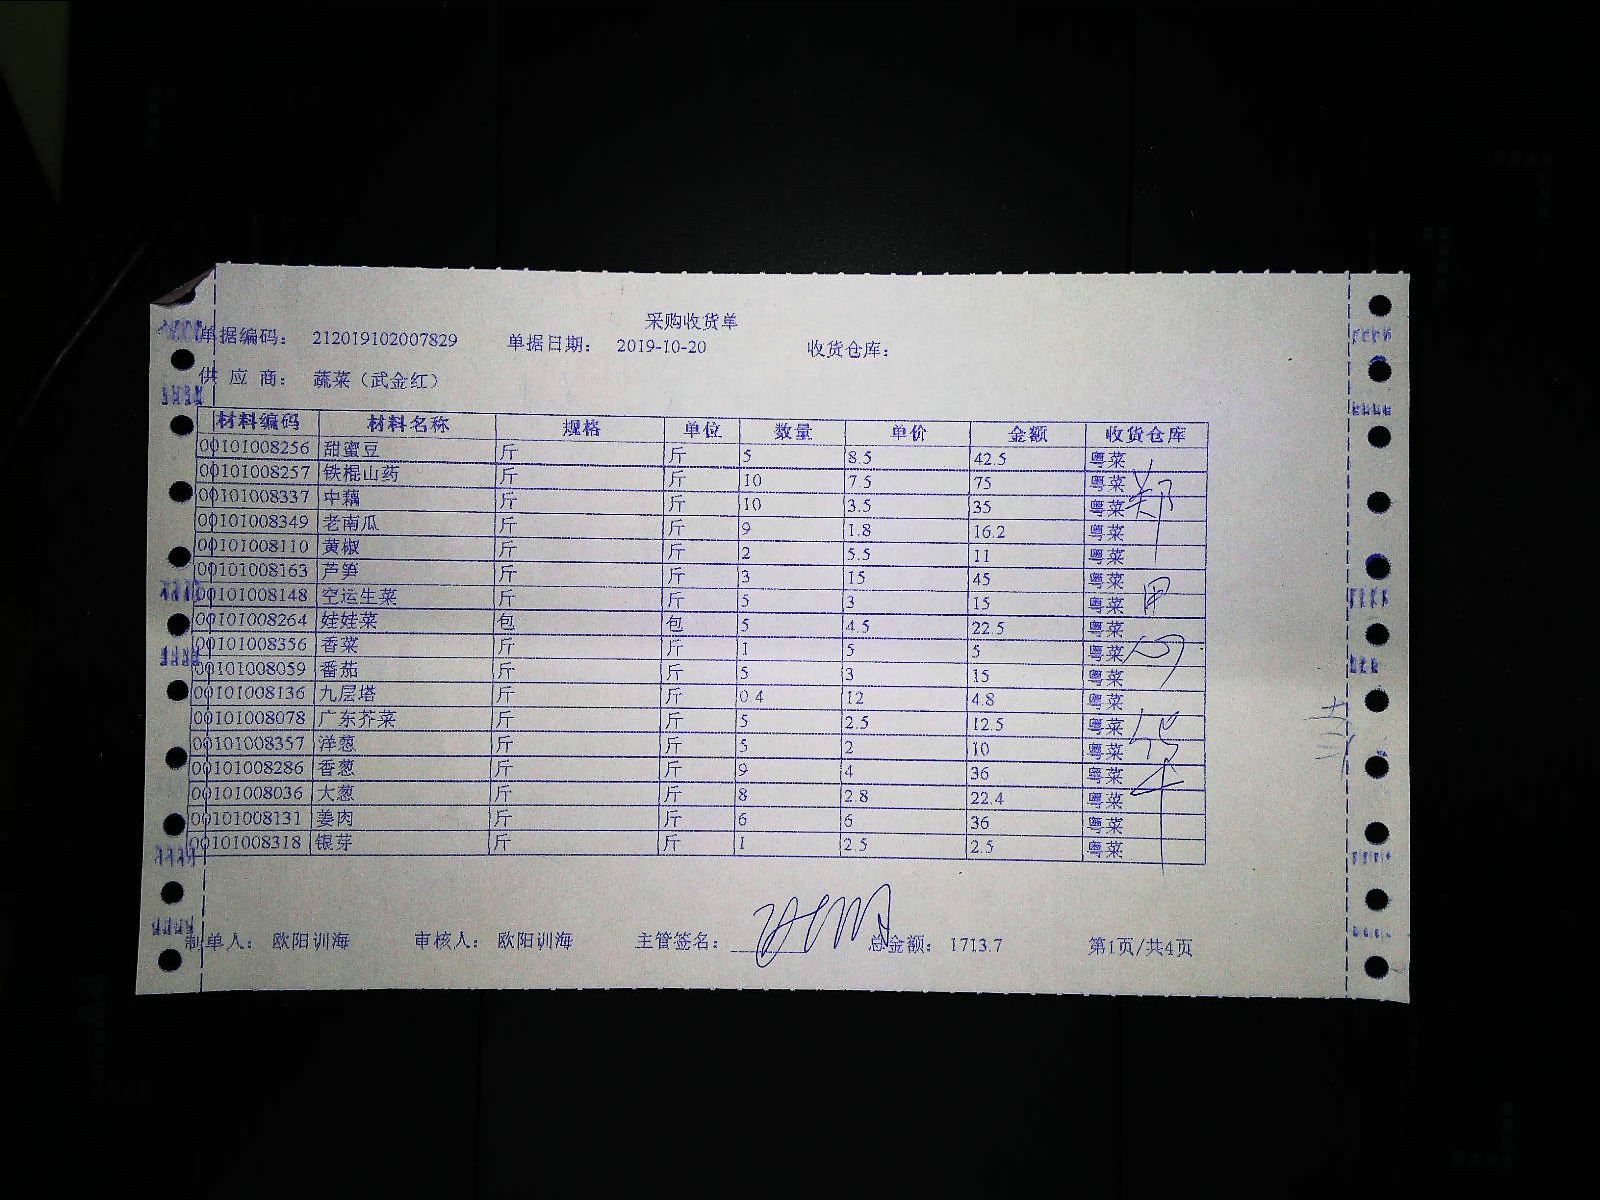 采购收货单
单据编码: 212019102007829 单据日期: 2019-10-20 收货仓库:
供 应 商: 蔬菜(武金红)
材料编码 材料名称 规格 单位 数量 单价 金额 收货仓库
00101008256 甜蜜豆 斤 斤 5 8.5 42.5 粤菜
00101008257 铁棍山药 斤 斤 10 7.5 75 粤菜
00101008337 中藕 斤 斤 10 3.5 35 粤菜
00101008349 老南瓜 斤 斤 9 1.8 16.2 粤菜
00101008110 黄椒 斤 斤 2 5.5 11 粤菜
00101008163 芦笋 斤 斤 3 15 45 粤菜
00101008148 空运生菜 斤 斤 5 3 15 粤菜
00101008264 娃娃菜 包 包 5 4.5 22.5 粤菜
00101008356 香菜 斤 斤 1 5 5 粤菜
00101008059 番茄 斤 斤 5 3 15 粤菜
00101008136 九层塔 斤 斤 0.4 12 4.8 粤菜
00101008078 广东芥菜 斤 斤 5 2.5 12.5 粤菜
00101008357 洋葱 斤 斤 5 2 10 粤菜
00101008286 香葱 斤 斤 9 4 36 粤菜
00101008036 大葱 斤 斤 8 2.8 22.4 粤菜
00101008131 姜肉 斤 斤 6 6 36 粤菜
00101008318 银芽 斤 斤 1 2.5 2.5 粤菜
制单人: 欧阳训海 审核人: 欧阳训海 主管签名: 总金额: 1713.7 第1页/共4页